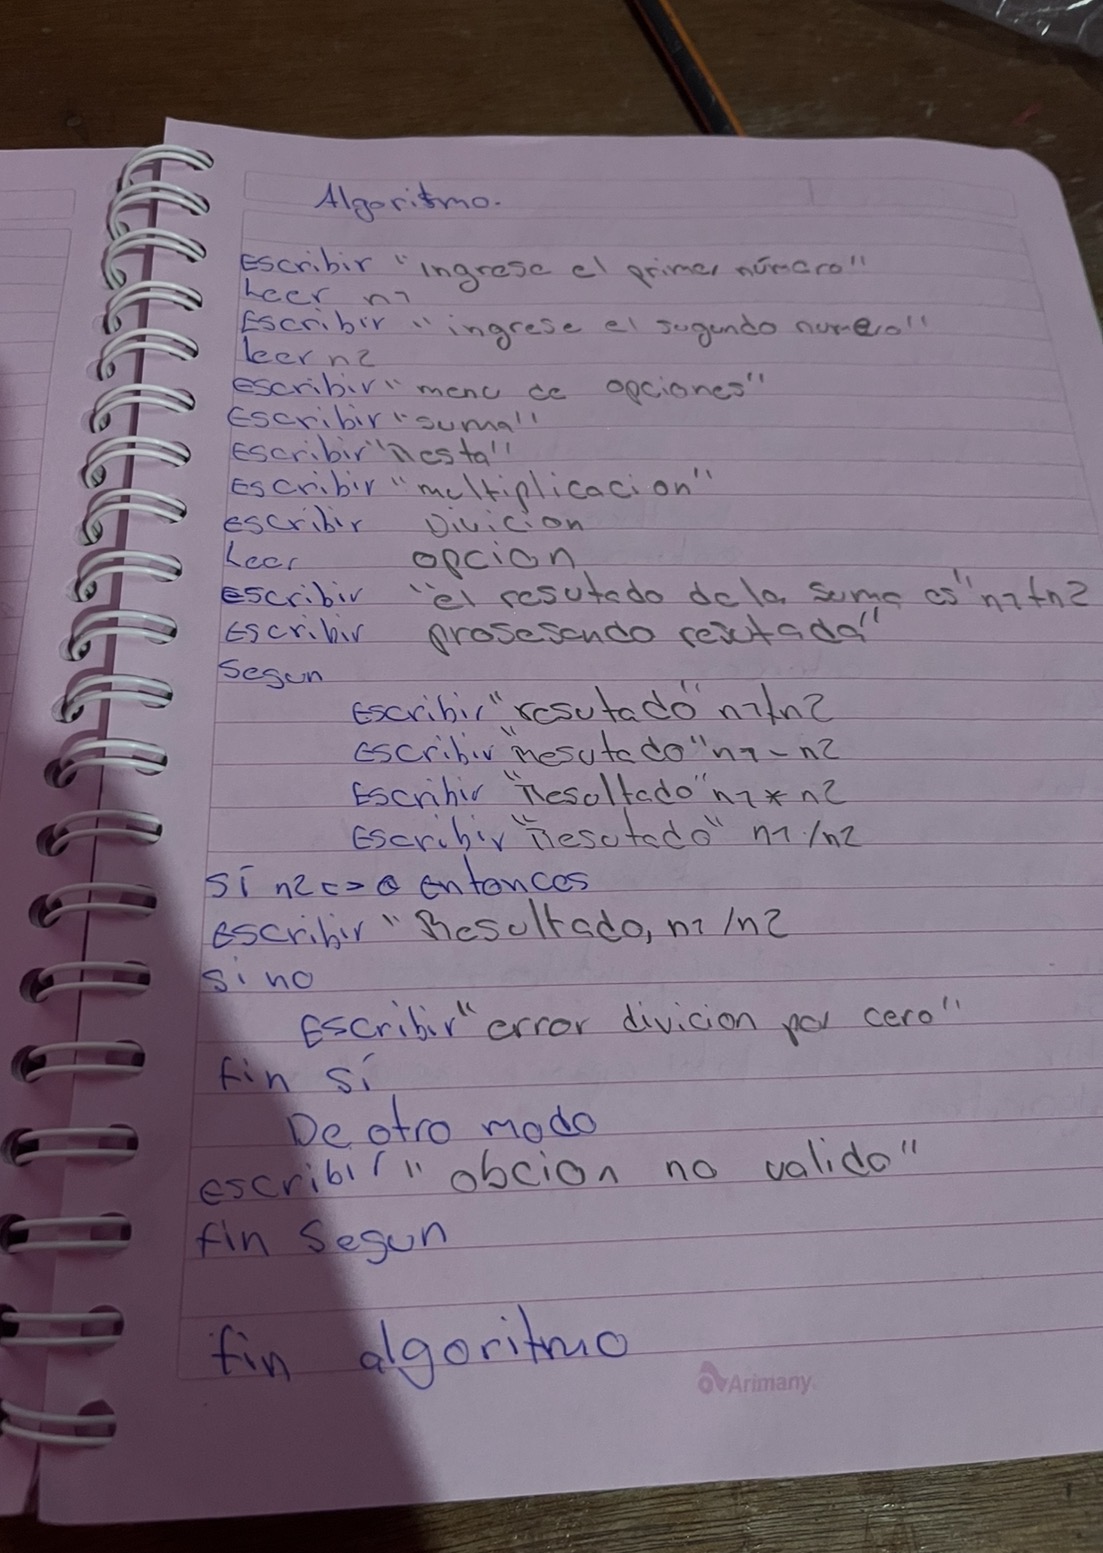 Algoritmo.
Escribir "ingrese el primer número"
Leer n1
Escribir "ingrese el sugundo numero"
leer n2
escribir "menu de opciones"
Escribir "suma"
Escribir "Resta"
Escribir "multiplicacion"
escribir Divicion
Leer opcion
escribir "el resutado de la suma es" n1+n2
Escribir prosesando "
Segun
Escribir "resutado" n1+n2
Escribir "Resutado" n1-n2
Escribir "Resoltado" n1*n2
Escribir "Resutado" n1/n2
Si n2 <> 0 entonces
escribir "Resultado, n1/n2
si no
Escribir "error divicion por cero"
fin si
De otro modo
escribir "obcion no valido"
fin Segun
fin algoritmo
Arimany